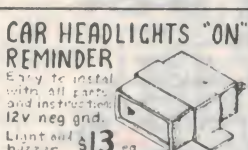 CAR HEADLIGHTS "ON"
REMINDER
Easy to instal
with all parts
and instructions
12V neg gnd.
Light and
buzzer $13 ea